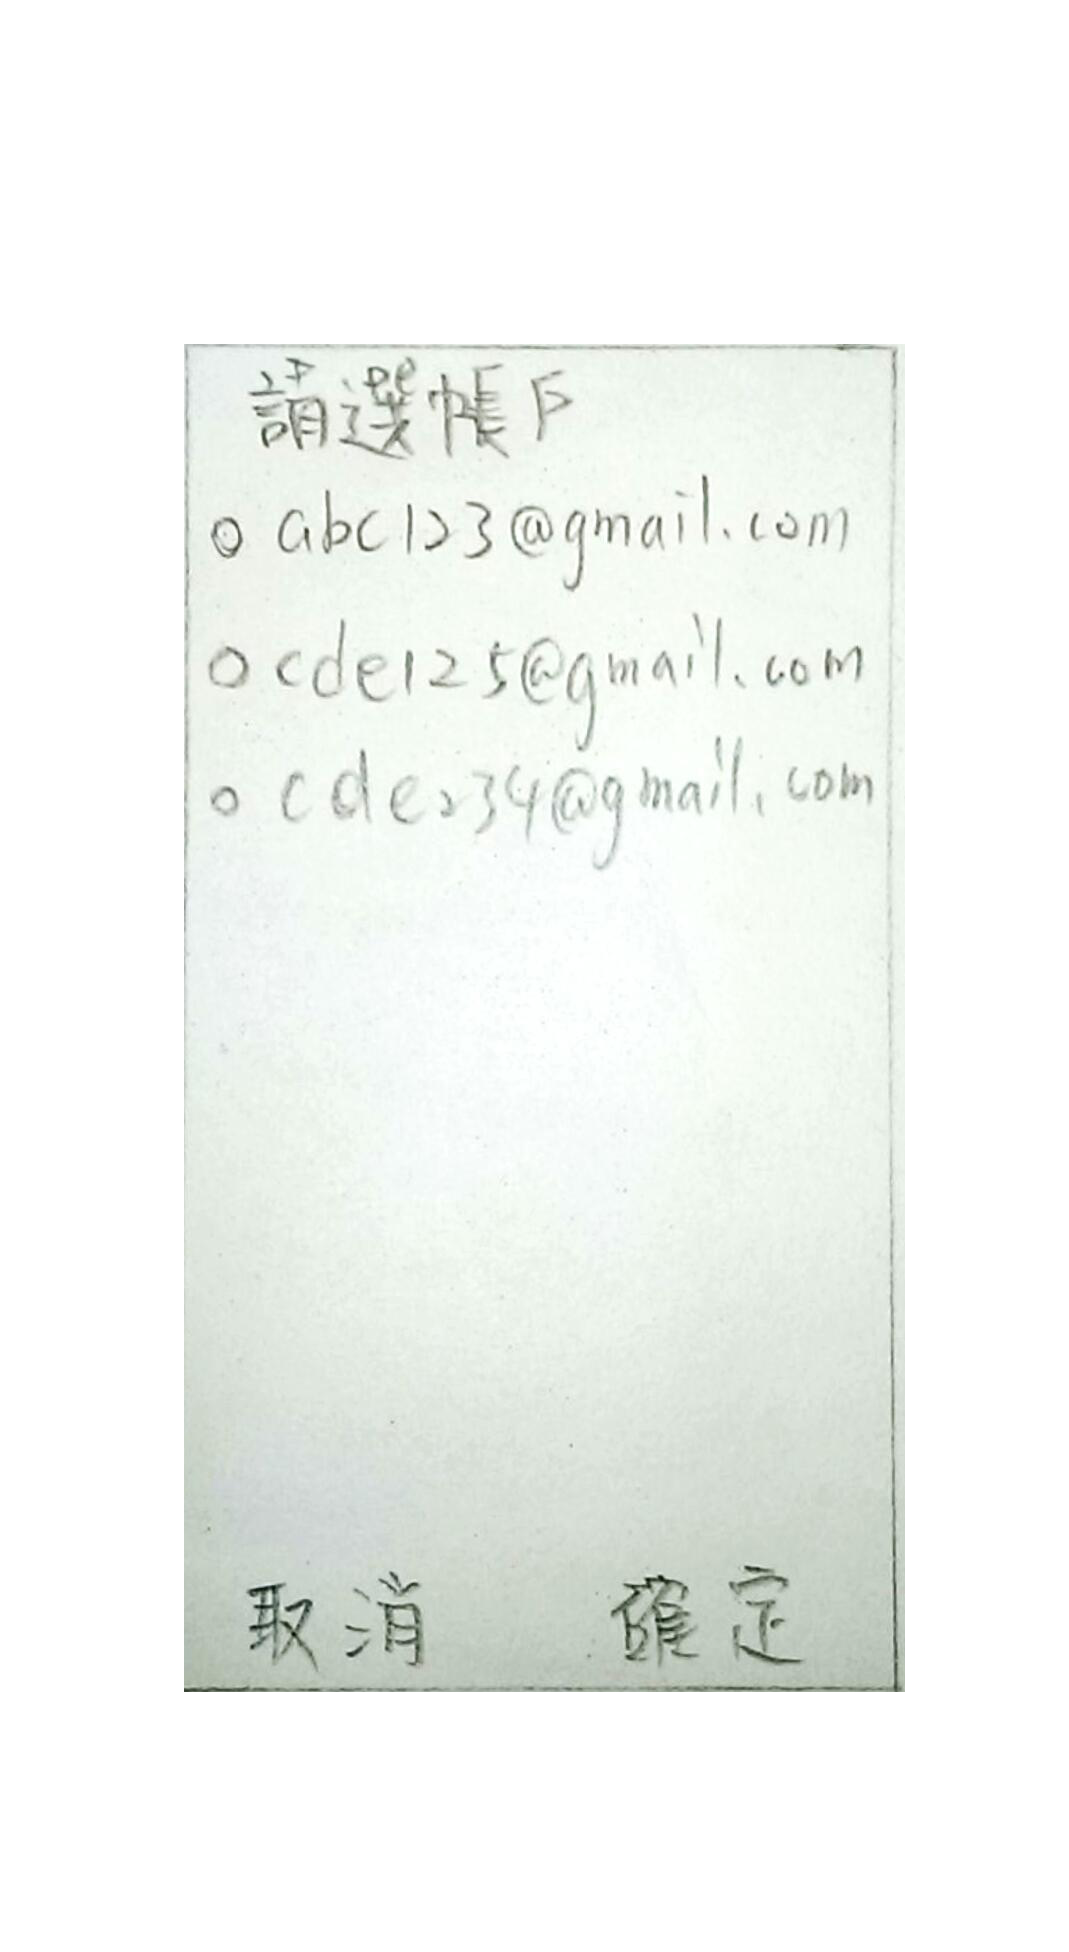 請選帳戶
abc123@gmail.com
cde125@gmail.com
cde234@gmail.com
取消 確定